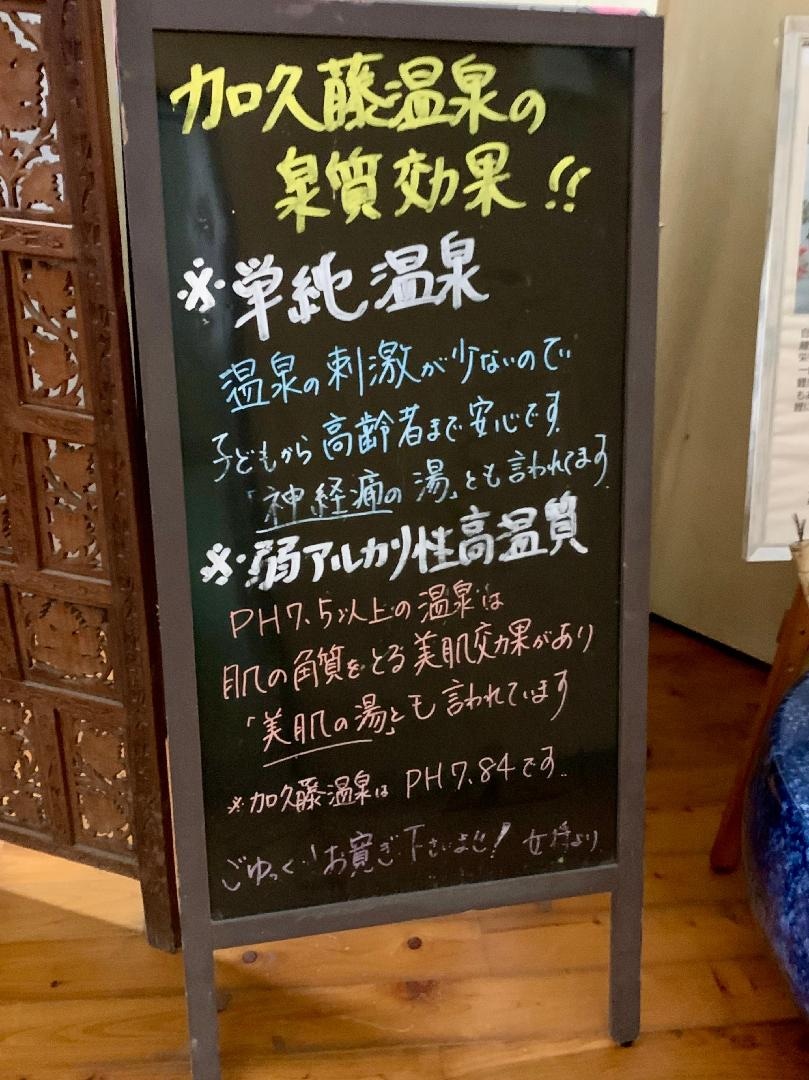 加久藤温泉の
泉質効果!!
※単純温泉
温泉の刺激が少ないので
子どもから高齢者まで安心です
「神経痛の湯」とも言われてます
※弱アルカリ性高温質
PH7.5以上の温泉は
肌の角質をとる美肌効果があり
「美肌の湯」とも言われています
※加久藤温泉は PH7.84です。
ごゆっくりお寛ぎ下さいませ! 女将より